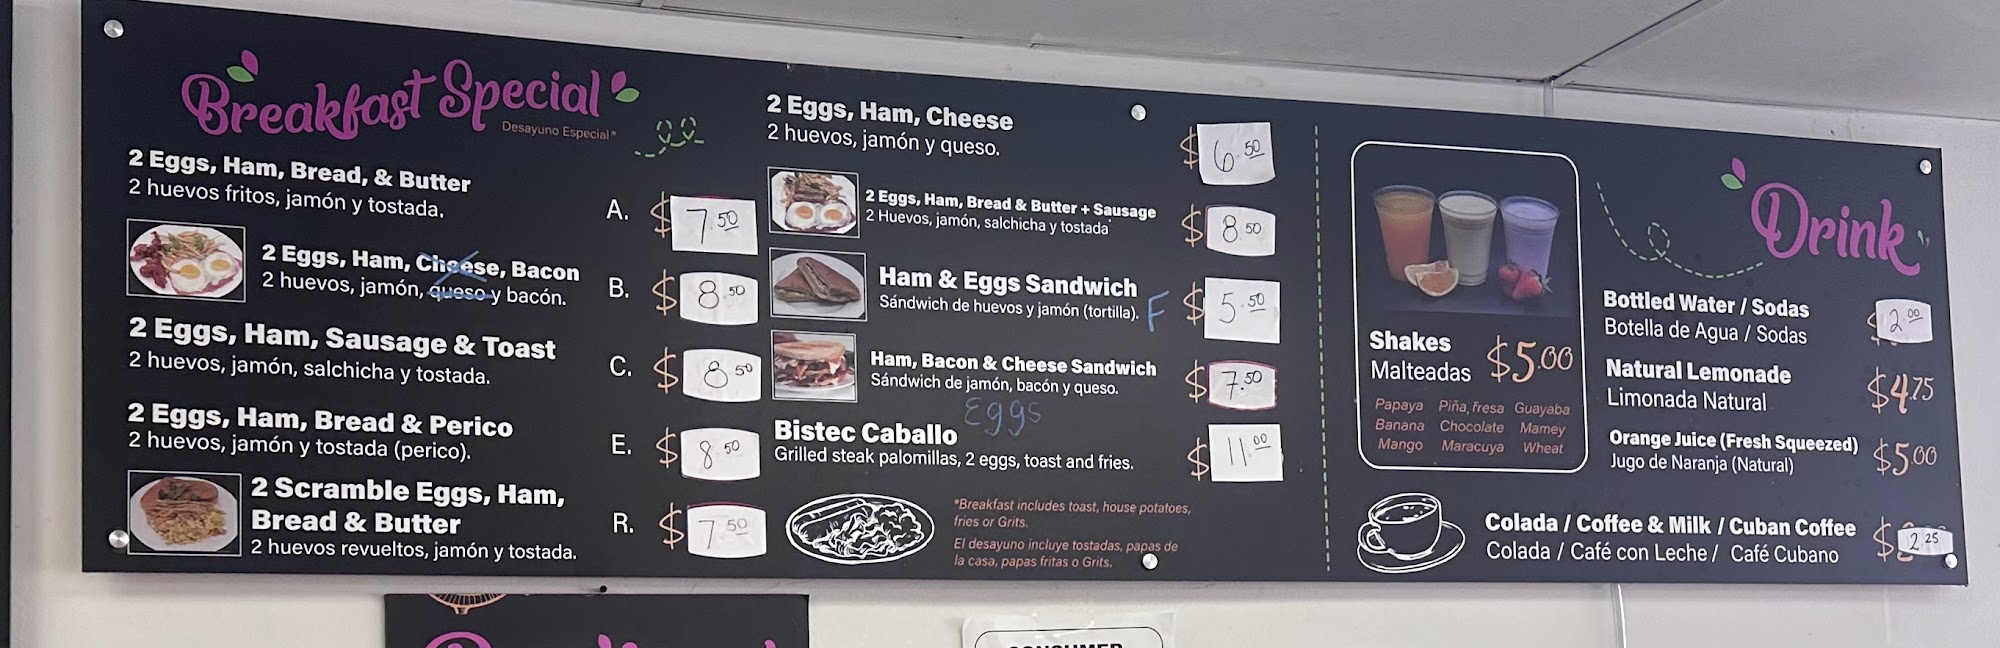 Breakfast Special
Desayuno Especial*
2 Eggs, Ham, Bread, & Butter
2 huevos fritos, jamón y tostada.
A. $7.50
2 Eggs, Ham, Cheese, Bacon
2 huevos, jamón, queso y bacón.
B. $8.50
2 Eggs, Ham, Sausage & Toast
2 huevos, jamón, salchicha y tostada.
C. $8.50
2 Eggs, Ham, Bread & Perico
2 huevos, jamón y tostada (perico).
E. $8.50
2 Scramble Eggs, Ham,
Bread & Butter
2 huevos revueltos, jamón y tostada.
R. $7.50
2 Eggs, Ham, Cheese
2 huevos, jamón y queso.
$6.50
2 Eggs, Ham, Bread & Butter + Sausage
2 Huevos, jamón, salchicha y tostada
$8.50
Ham & Eggs Sandwich
Sándwich de huevos y jamón (tortilla).
F $5.50
Ham, Bacon & Cheese Sandwich
Sándwich de jamón, bacón y queso.
Eggs
$7.50
Bistec Caballo
Grilled steak palomillas, 2 eggs, toast and fries.
$11.00
*Breakfast includes toast, house potatoes,
fries or Grits.
El desayuno incluye tostadas, papas de
la casa, papas fritas o Grits.
Shakes
Malteadas
$5.00
Papaya Piña, fresa Guayaba
Banana Chocolate Mamey
Mango Maracuya Wheat
Drink
Bottled Water / Sodas
Botella de Agua / Sodas
$2.00
Natural Lemonade
Limonada Natural
$4.75
Orange Juice (Fresh Squeezed)
Jugo de Naranja (Natural)
$5.00
Colada / Coffee & Milk / Cuban Coffee
Colada / Café con Leche / Café Cubano
$2.25
CONSUMER